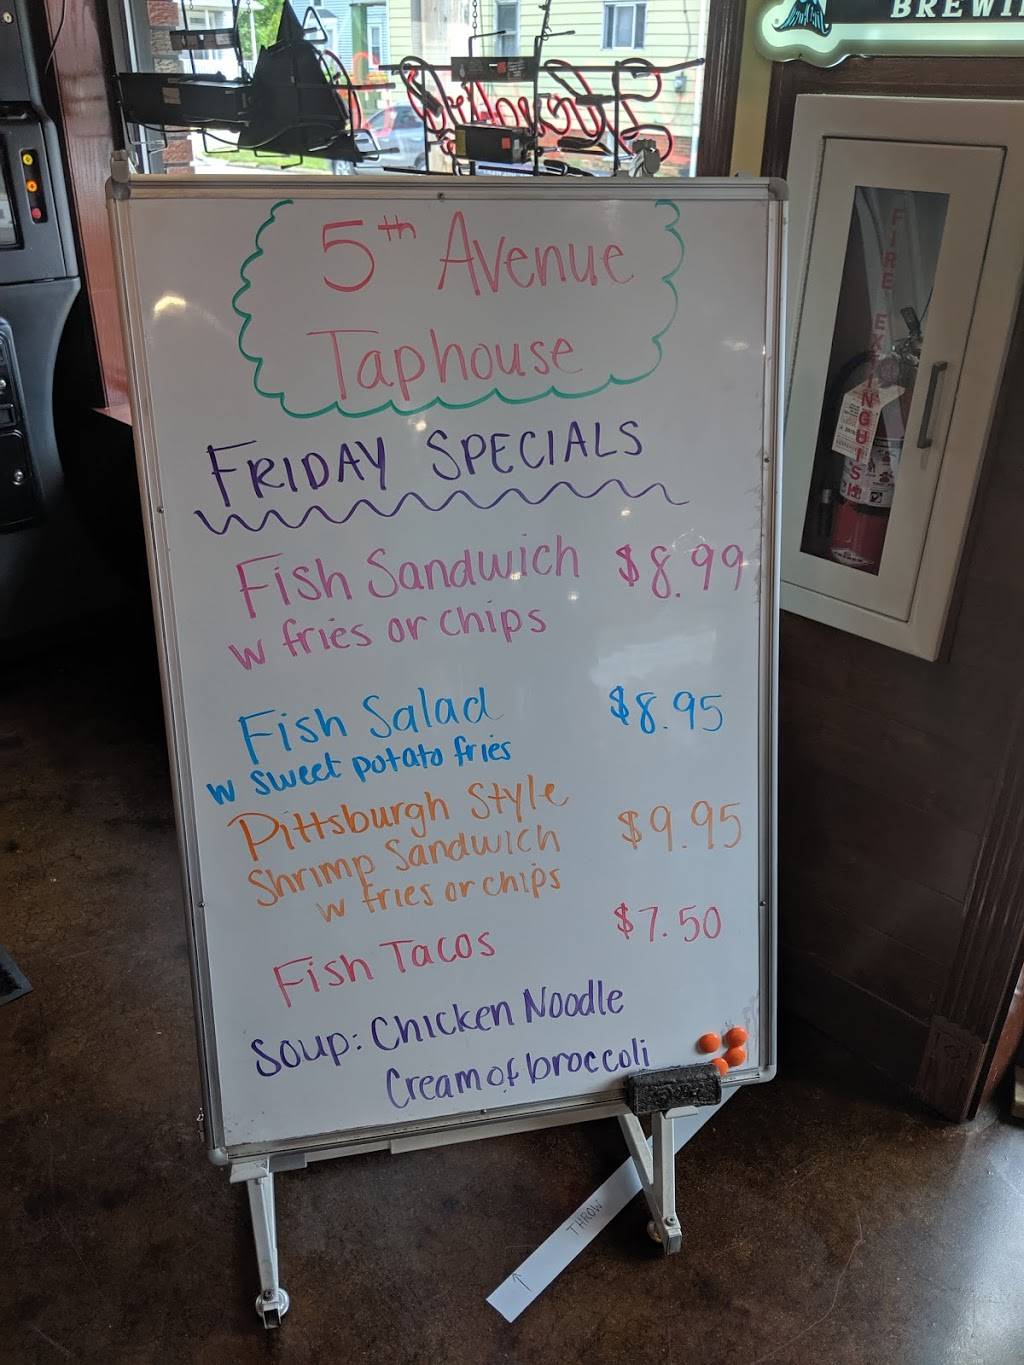 BREWI
5th Avenue
Taphouse
FRIDAY SPECIALS
Fish Sandwich $8.99
w fries or chips
Fish Salad $8.95
w sweet potato fries
Pittsburgh Style
Shrimp Sandwich $9.95
w fries or chips
Fish Tacos $7.50
Soup: Chicken Noodle
Cream of broccoli
FIRE EXTINGUISH
THROW